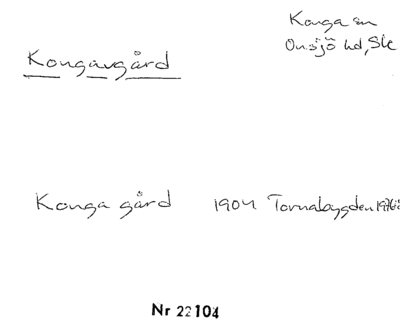 Konga sn
Onsjö hd, Ske
Kongavgård
Konga gård 1904 Tornabygden
Nr 22104